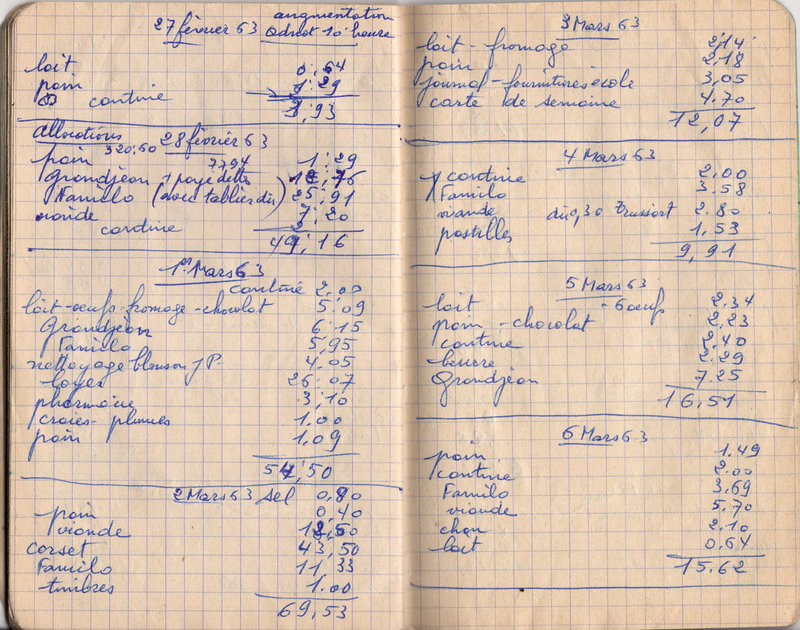 27 février 63 augmentation
Odrat 10 heure
lait 0,64
pain 1.29
cantine
1,93
allocations 28 février 63
320.60
7794
pain 1.29
Grandjean + payé dette 12,76
Familo (avec tablier dû) 25,91
viande 7.20
cantine 2
49,16
1er Mars 63
cantine 2.00
lait-oeufs-fromage-chocolat 5.09
Grandjean 6.15
Familo 5,95
nettoyage blouson J P. 4.05
loyer 26.07
pharmacie 3,10
craies-plumes 1.00
pain 1,09
54,50
2 Mars 63 sel 0,80
pain 0,40
viande 12,50
corset 43,50
Familo 11,33
timbres 1.00
69,53
3 Mars 63
lait-fromage 2,14
pain 2,18
journal-fournitures école 3,05
carte de semaine 4.70
12,07
4 Mars 63
cantine 2.00
Familo 3.58
viande dû 0,30 Trussart 2.80
pastilles 1,53
9,91
5 Mars 63
lait - 6 oeufs 2.34
pain-chocolat 2,23
cantine 2,40
beurre 2.29
Grandjean 7.25
16,51
6 Mars 63
pain 1.49
cantine 2.00
Familo 3,69
viande 5.70
chou 2.10
lait 0.64
15.62